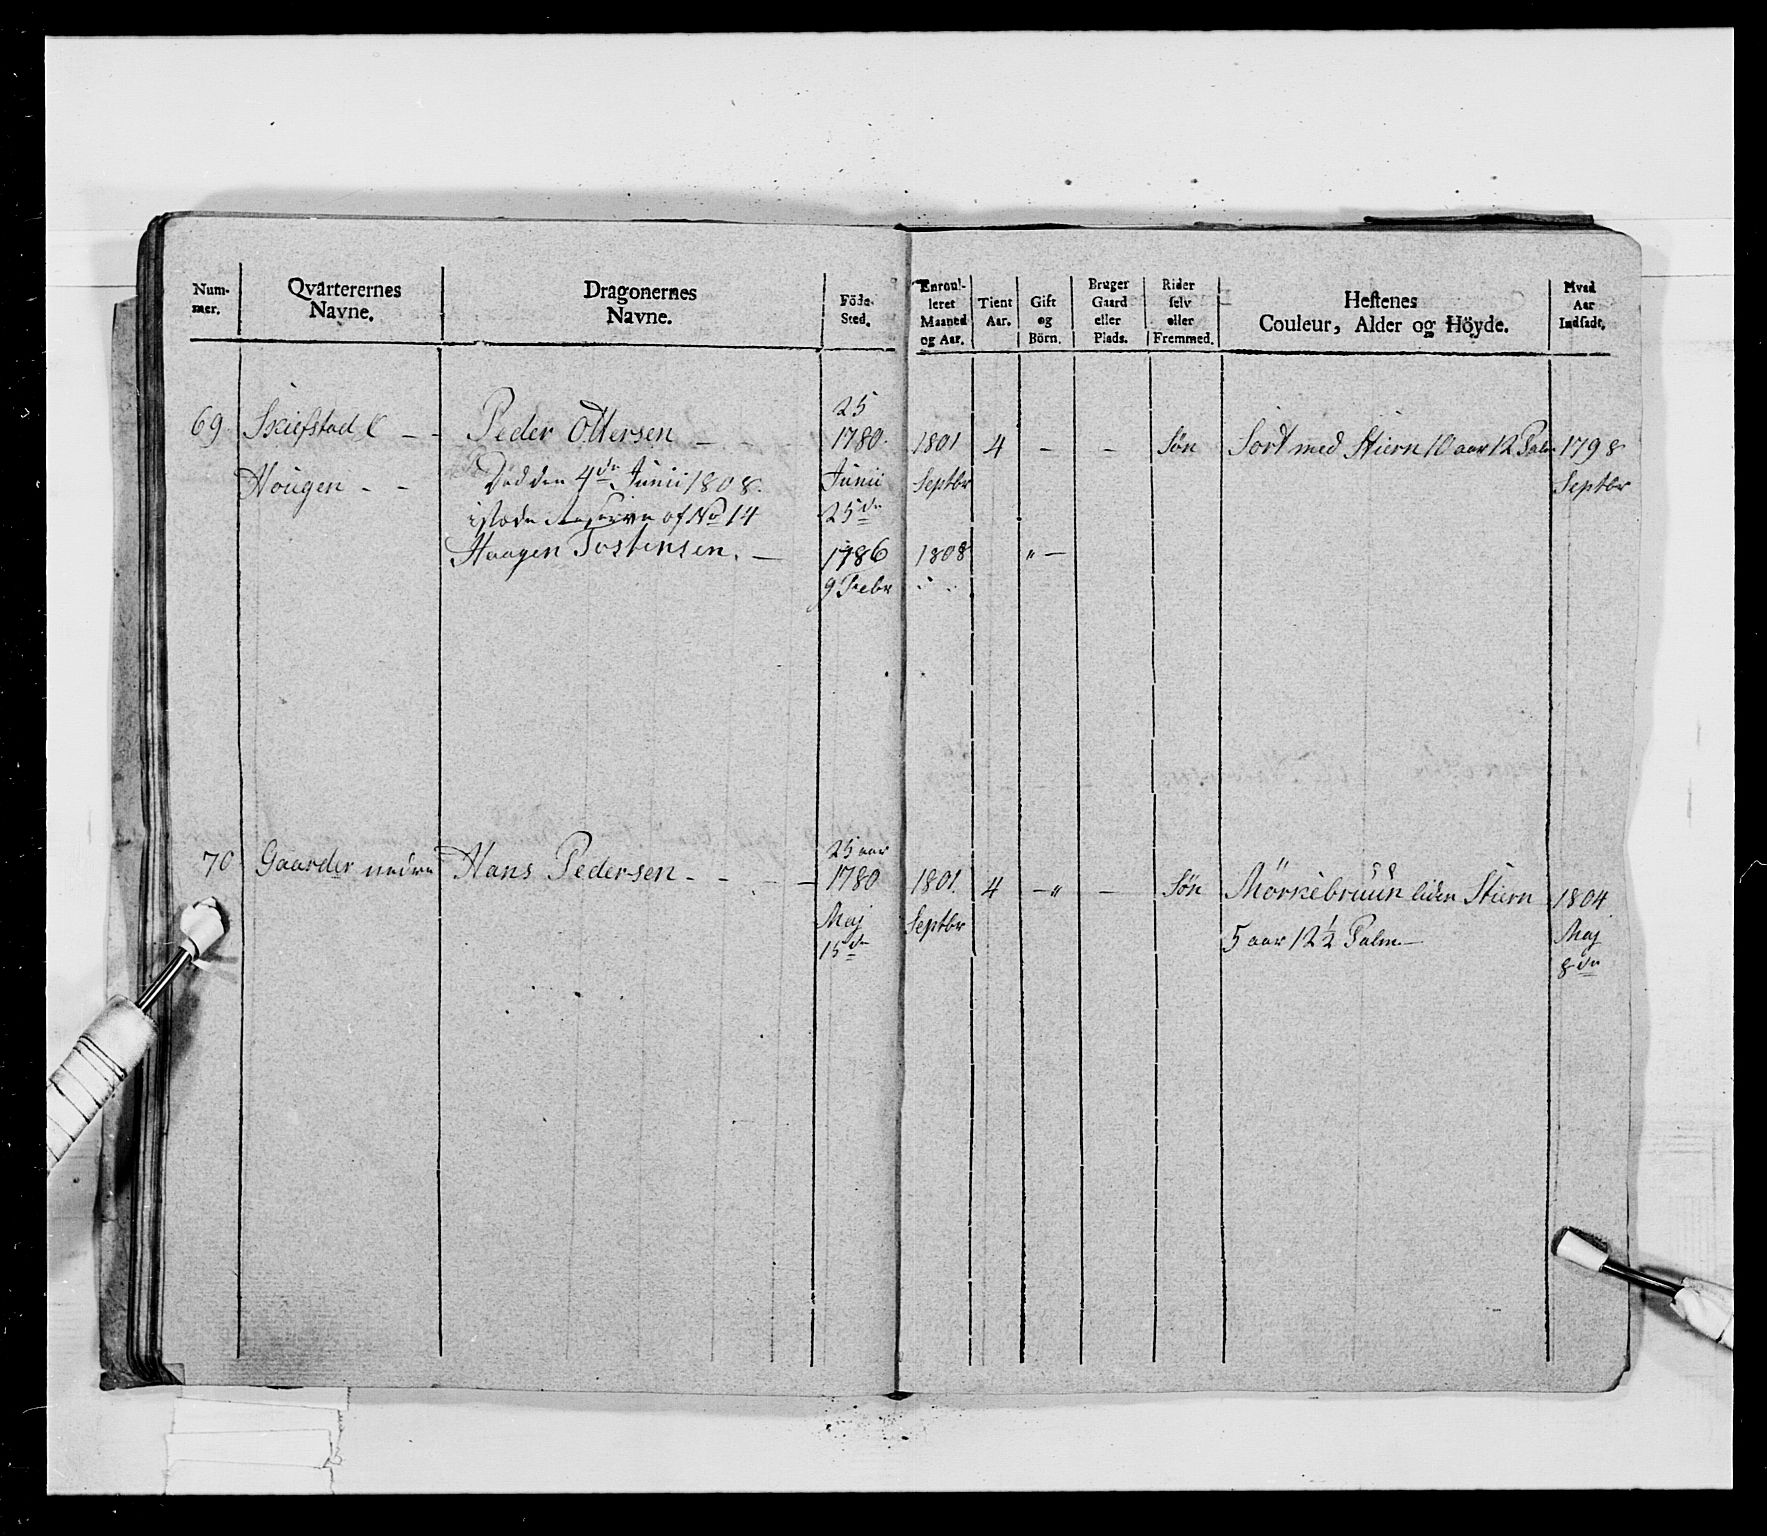 Num-
mer.
Qvarterernes
Navne.
Dragonernes
Navne.
Föde-
Sted.
Enroul-
leret
Maaned
og Aar.
Tient
Aar.
Gift
og
Börn.
Bruger
Gaard
eller
Plads.
Rider
selv
eller
Fremmed.
Hestenes
Couleur, Alder og Höyde.
Hvad
Aar
Indsadt.
69. Skiefstad
Hougen - -
Peder Ottersen - -
Död den 4de Junii 1808.
istæde Reserve af No 14
Haagen Tostensen. -
25
1780.
Junii
25de
1786
9 Febr
1801
Septbr
1808
4 - - Søn
" -
Sort med Stiern 10 aar 12 Palm
1798
Septbr
70 Gaarder nedre Hans Pedersen - - - -
25 aar
1780
Maj
15de
1801.
Septbr
4 - " - Søn
Mörkebruun liden Stiern
5 aar 12 1/2 Palm -
1804.
Maj
8de